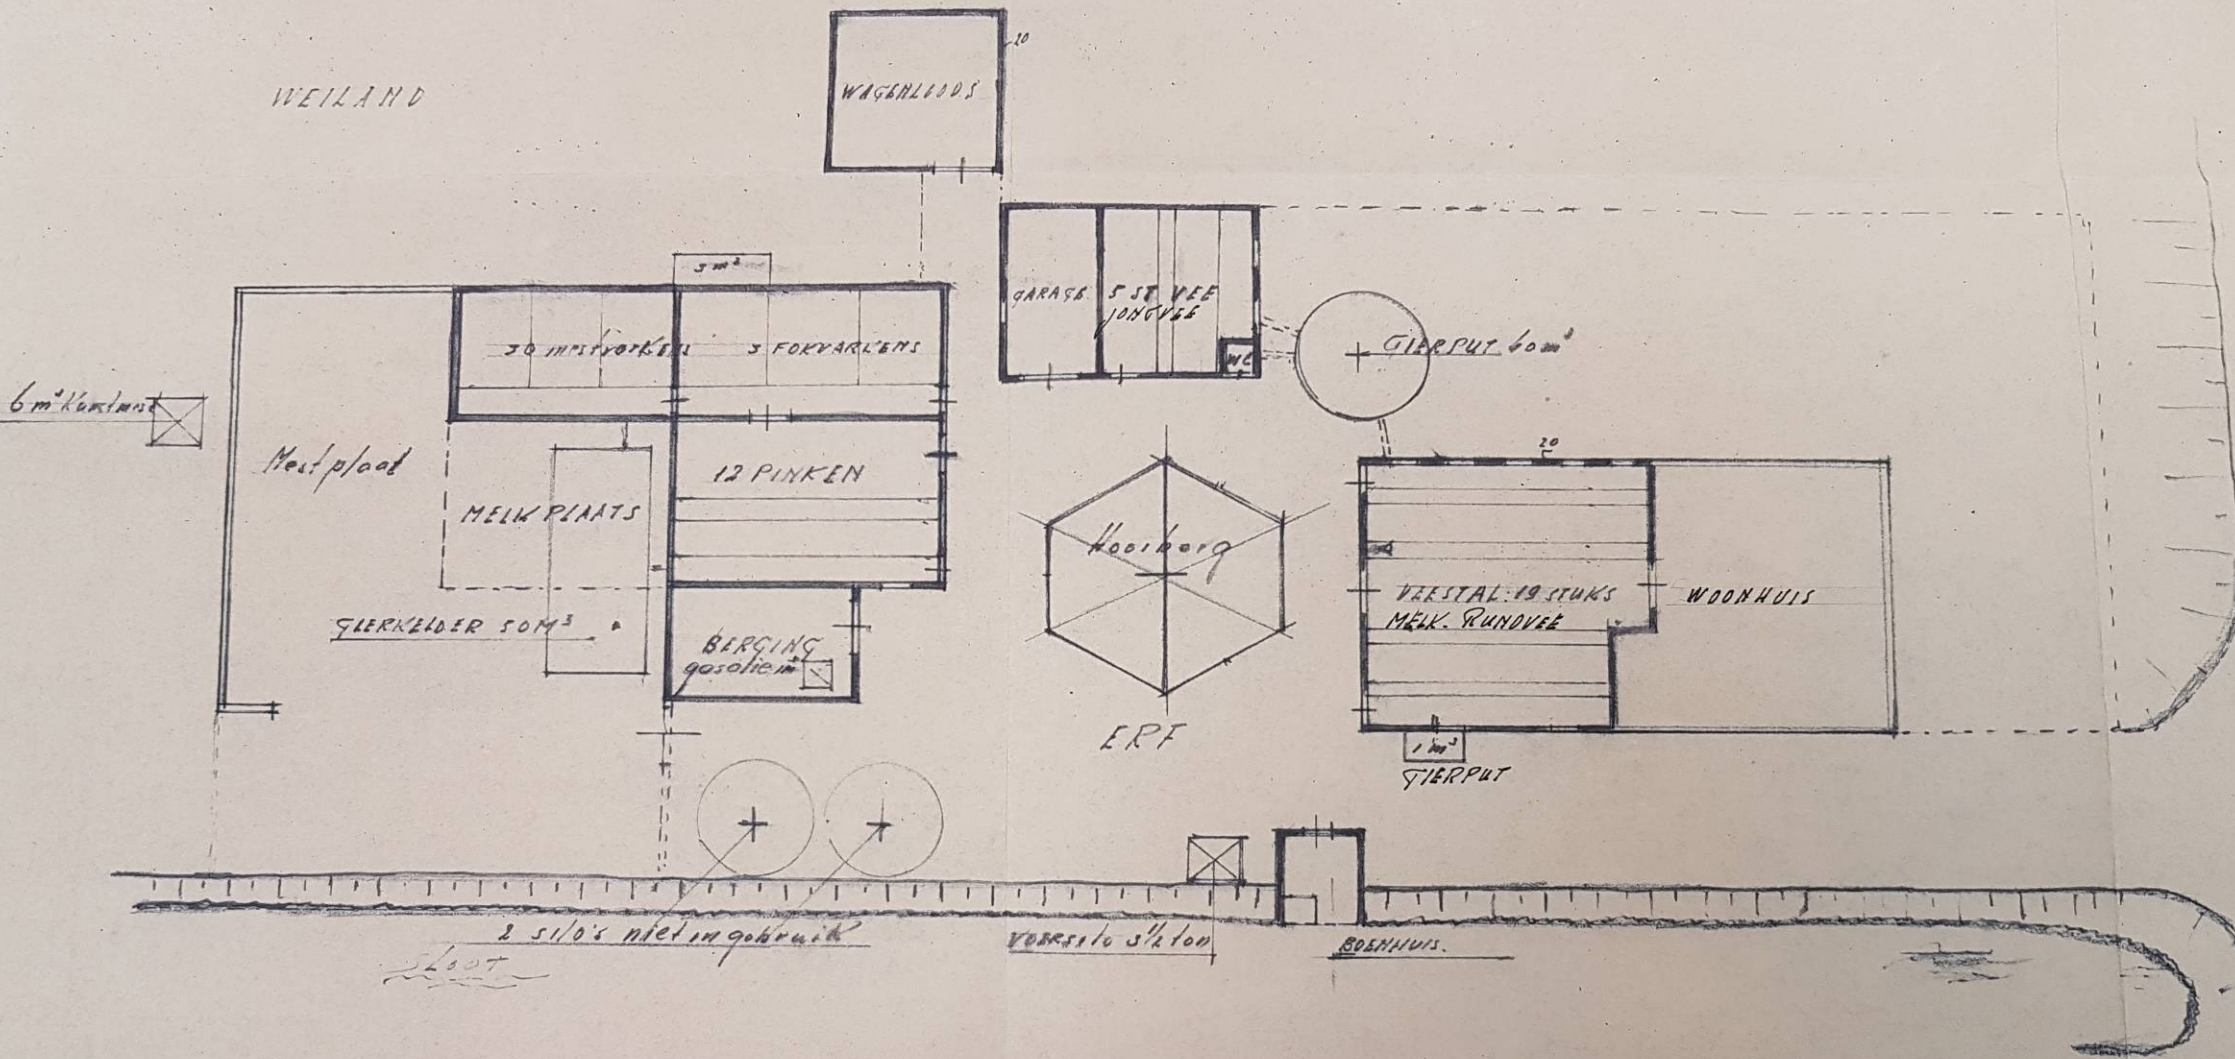 20
WAGENLOODS
WEILAND
3 m³
GARAGE
5 ST VEE
JONGVEE
WC
GIERPUT 60 m³
30 mestvarkens
3 FOKVARKENS
6 m³ Kunstmest
Mestplaat
12 PINKEN
MELK PLAATS
20
Hooiberg
VEESTAL: 19 STUKS
MELK. RUNDVEE
WOONHUIS
GIERKELDER 50M³
BERGING
gasolie
ERF
1 m³
GIERPUT
2 silo's niet in gebruik
VOERSILO 3½ ton
BOENHUIS.
SLOOT